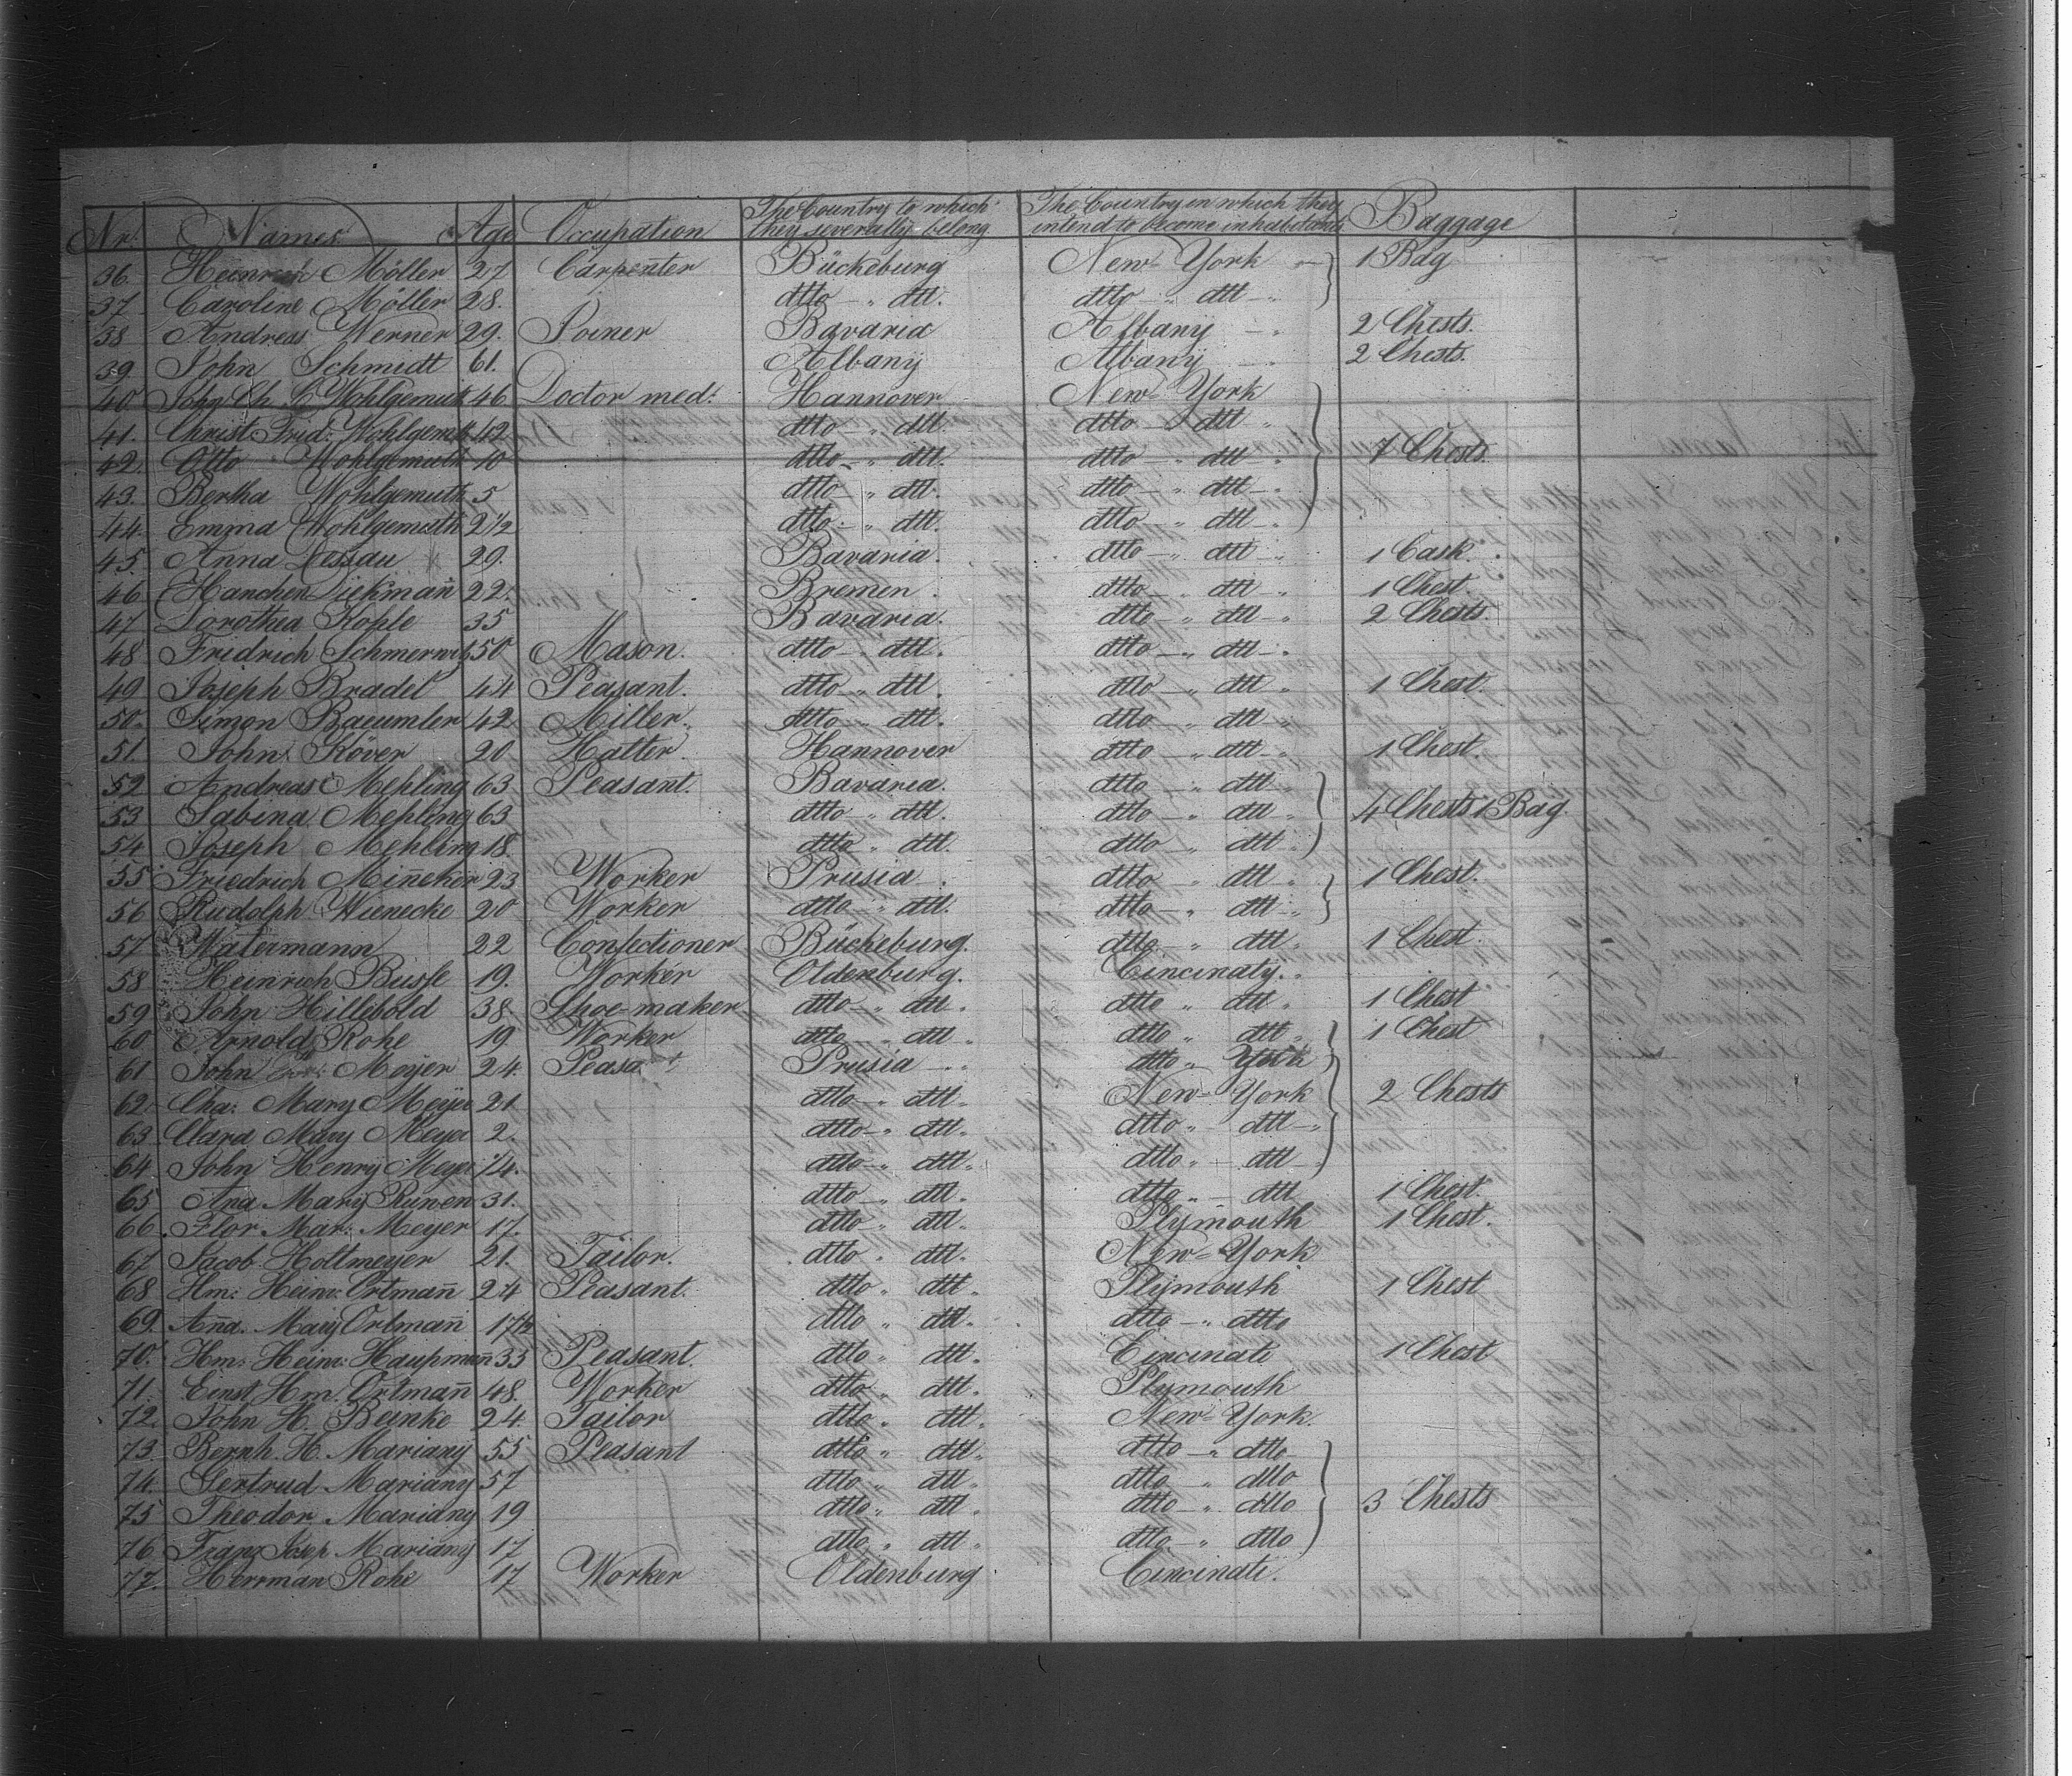 Nr. Names Age Occupation The Country to which they severally belong The Country in which they intend to become inhabitants Baggage
36. Heinrich Möller 27 Carpenter Bückeburg New-York 1 Bag
37 Caroline Möller 28. dtto " dtt. dtto " dtt
38 Andreas Werner 29. Joiner Bavaria Albany 2 Chests.
39 John Schmidt 61. Albany Albany 2 Chests.
40 John Ch. C. Wohlgemuth 46 Doctor med: Hannover New-York
41. Christ. Frid: Wohlgemuth 42 dtto " dtt. dtto " dtt
42. Otto Wohlgemuth 10 dtto " dtt. dtto " dtt 7 Chests.
43. Bertha Wohlgemuth 5 dtto " dtt. dtto " dtt
44. Emma Wohlgemuth 2 1/2 dtto " dtt. dtto " dtt
45. Anna Dessau 29. Bavaria. dtto " dtt 1 Cask
46. Hanchen Diekmañ 22. Bremen dtto " dtt 1 Chest.
47 Dorothea Kople 35 Bavaria. dtto " dtt 2 Chests.
48 Fridrich 50 Mason. dtto " dtt. dtto " dtt
49 Joseph Bradel 44 Peasant. dtto " dtt. dtto " dtt 1 Chest.
50. Simon Baeumler 42 Miller. dtto " dtt. dtto " dtt
51. John Köver 20 Hatter. Hannover dtto " dtt 1 Chest.
52 Andreas Mehling 63 Peasant. Bavaria. dtto " dtt
53 Sabina Mehling 63 dtto " dtt. dtto " dtt 4 Chests 1 Bag.
54 Joseph Mehling 18 dtto " dtt. dtto " dtt
55 Friedrich Mineker 23 Worker Prusia dtto " dtt 1 Chest.
56 Rudolph Wienecke 20 Worker dtto " dtt. dtto " dtt
57 Watermann 22 Confectioner Bückeburg. dtto " dtt 1 Chest.
58 Heinrich Busse 19. Worker Oldenburg. Cincinaty.
59 John Hillebold 38. Shoe-maker dtto " dtt. dtto " dtt 1 Chest
60 Arnold Rohe 19 Worker dtto " dtt. dtto " dtt 1 Chest
61 John Meyer 24. Peasant Prusia dtto " York
62. Cha: Mary Meyer 21 dtto " dtt. New-York 2 Chests
63. Clara Mary Meyer 2. dtto " dtt. dtto " dtt
64. John Henry Meyer dtto " dtt. dtto " dtt
65 Ana Mary Ruwen 31. dtto " dtt. dtto " dtt 1 Chest.
66. Flor Mar: Meyer 17. dtto " dtt. Plymouth 1 Chest.
67 Jacob Holtmeyer 21. Tailor. dtto " dtt. New-York
68 Hm: Heinr: Ortmañ 24 Peasant. dtto " dtt. Plymouth 1 Chest
69. Aña. Mary Ortmañ 17 1/2 dtto " dtt. dtto " dtto
70. Hm: Heinr: Haupmañ 35 Peasant. dtto " dtt. Cincinati 1 Chest
71. Ernst Hm. Ortmañ 48. Worker dtto " dtt. Plymouth
72. John H. Beinke 24. Tailor dtto " dtt. New-York.
73. Bernh. H. Mariany 55 Peasant dtto " dtt. dtto " dtto
74. Gertrud Mariany 57 dtto " dtt. dtto " dtto
75 Theodor Mariany 19 dtto " dtt. dtto " dtto 3 Chests
76 Franz Josep Mariany 17 dtto " dtt. dtto " dtto
77. Herrman Rohe 17 Worker Oldenburg Cincinati.